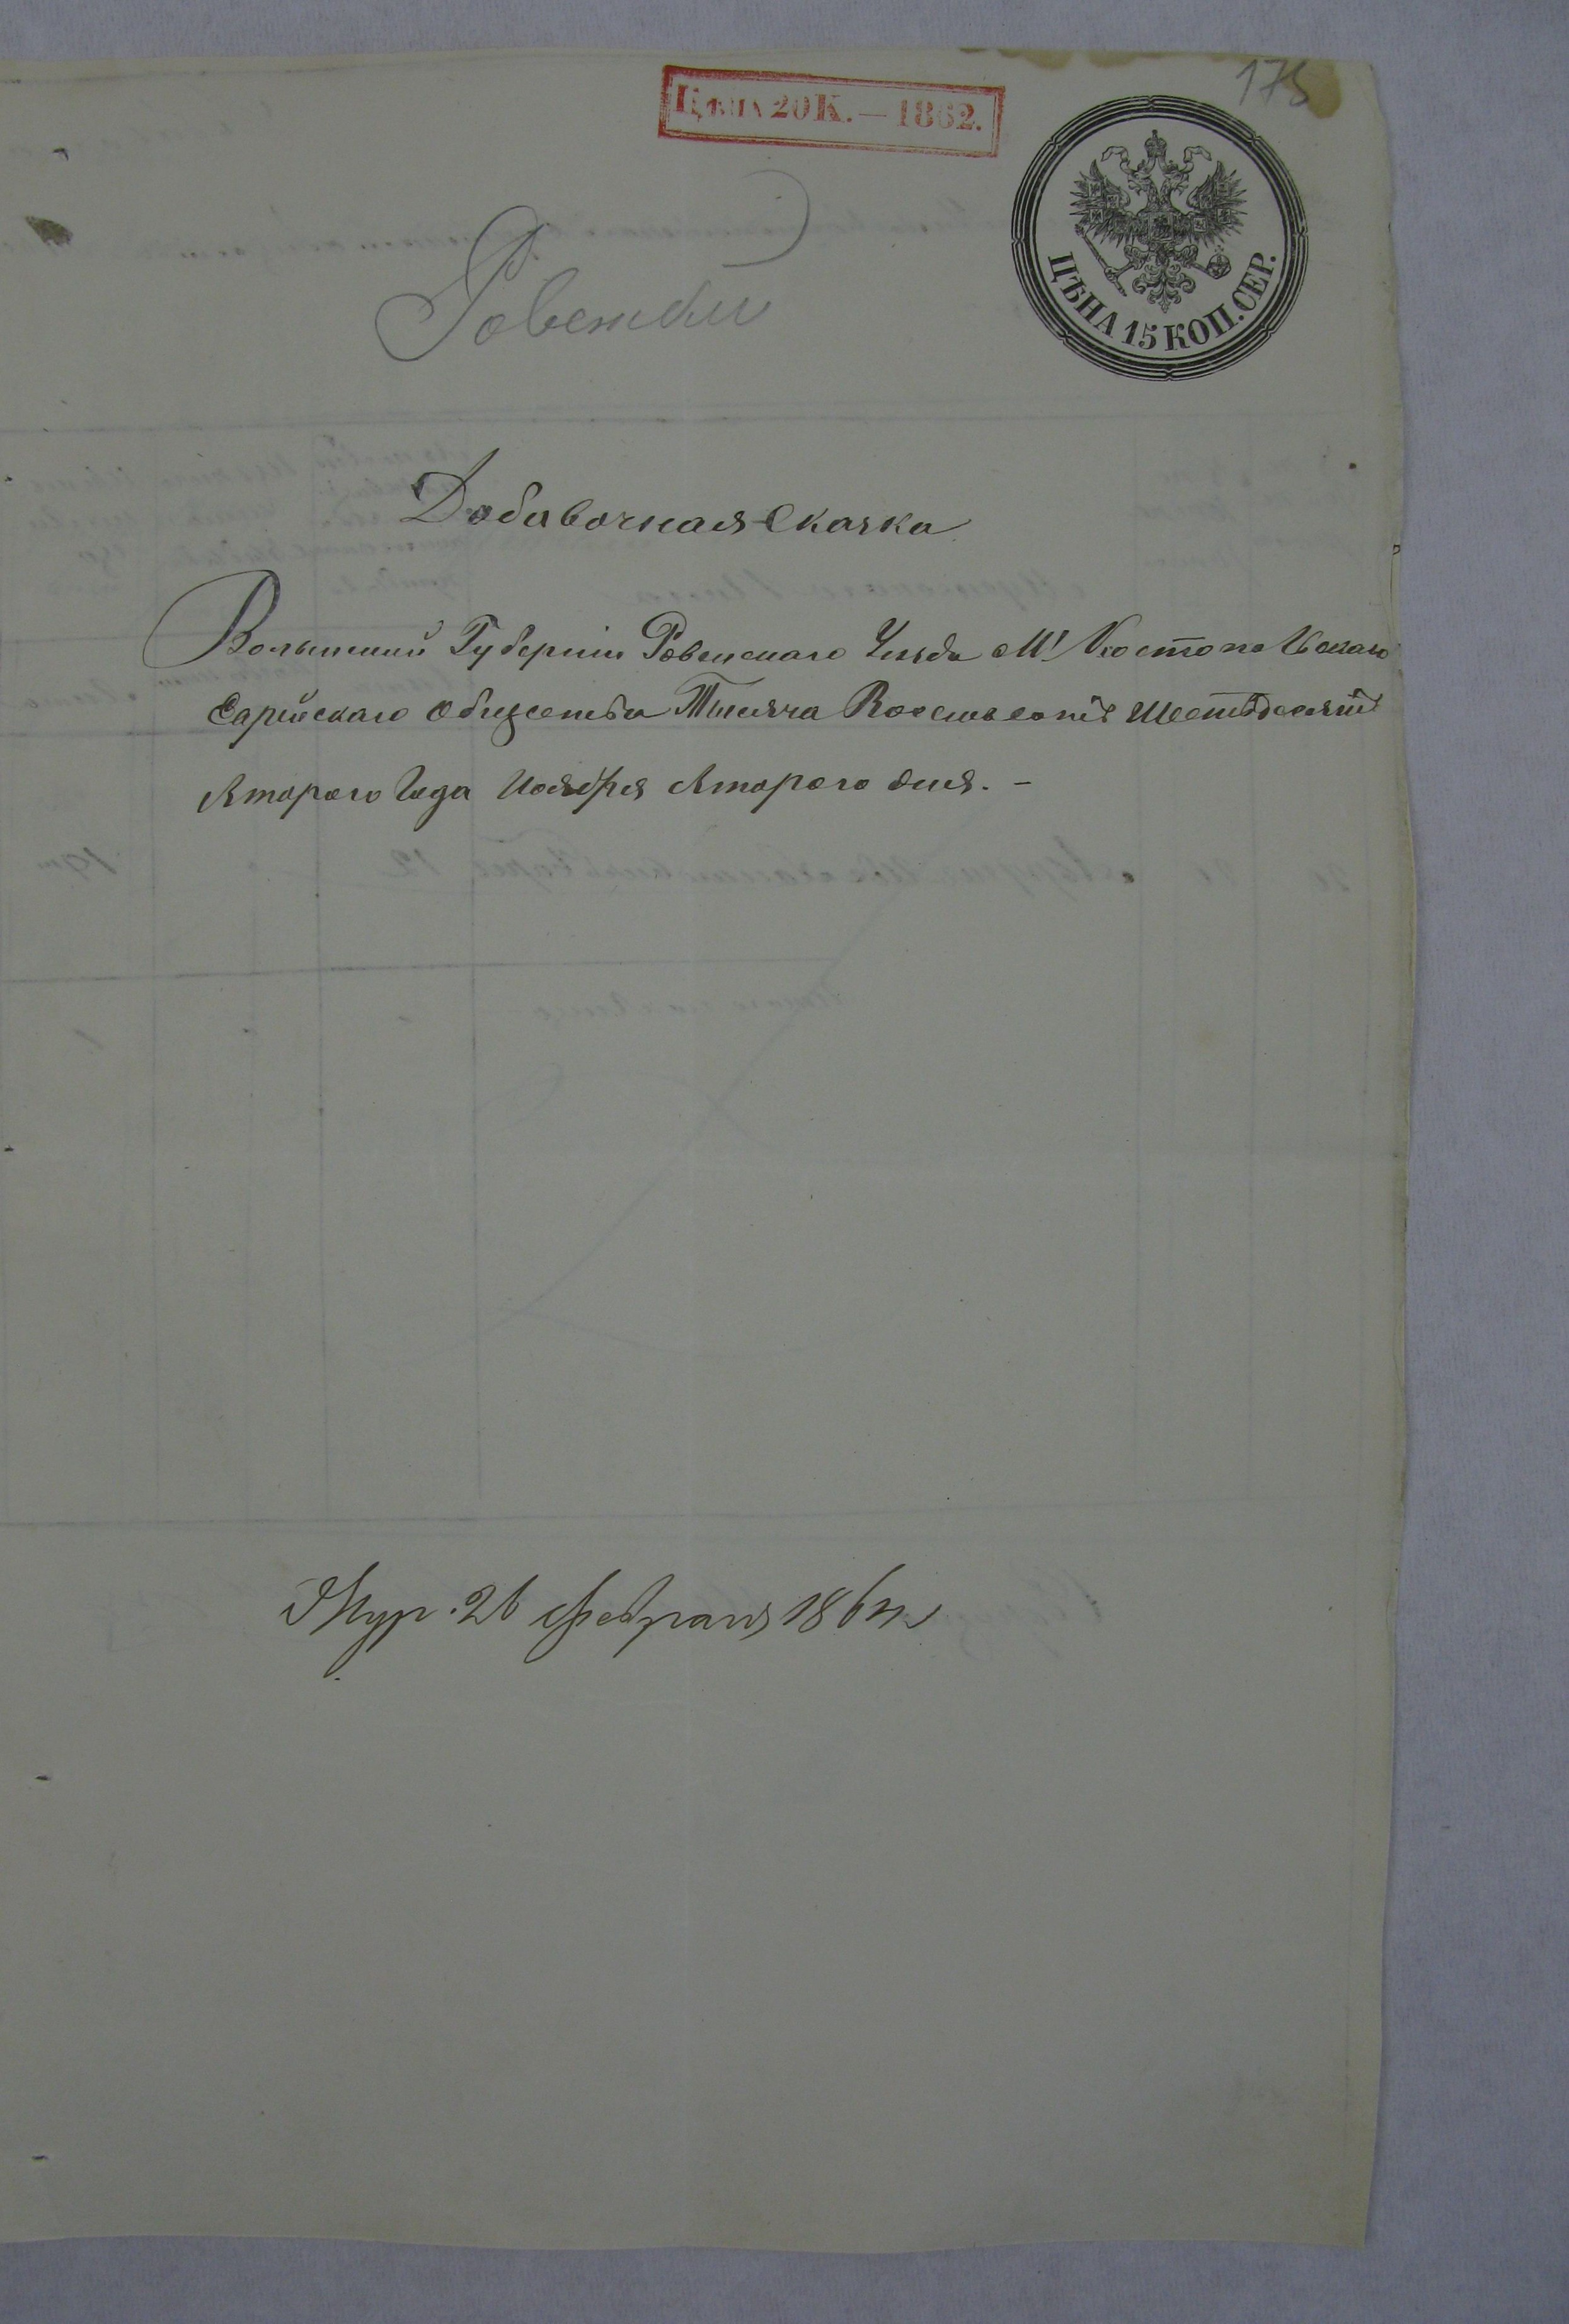 175
ЦѢНА 20 К. — 1862.
ЦѢНА 15 КОП. СЕР.
Добавочная Скаска
Волынской Губерніи Ровенскаго Уезда М. Костопольскаго
Еврейскаго общества Тысяча Восемьсотъ Шестьдесятъ
Втораго Года Ноября Втораго дня. –
Жур. 26 февраля 186